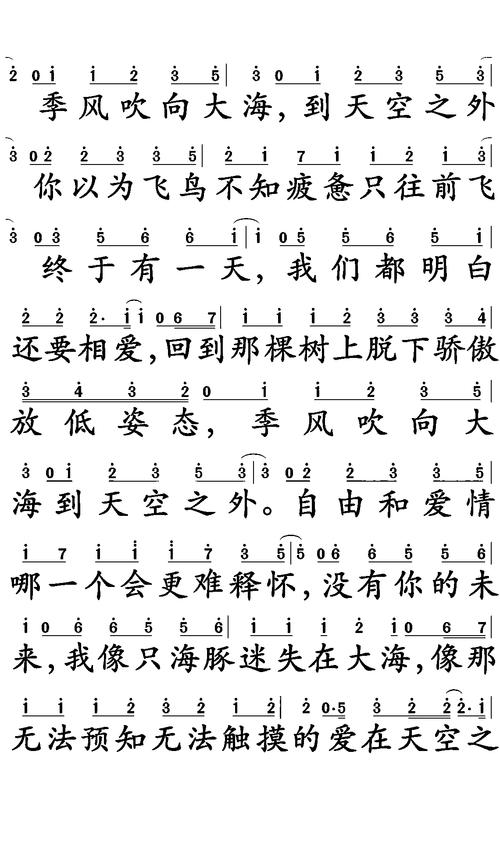 2 0 1 1 2 3 5 | 3 0 1 2 3 5 3 |
季风吹向大海,到天空之外
3 0 2 2 3 3 5 | 2 1 7 1 1 2 1 3 |
你以为飞鸟不知疲惫只往前飞
3 0 3 5 6 6 1 | 1 0 5 5 6 5 1 |
终于有一天,我们都明白
2 2 2· 1 1 0 6 7 | 1 1 1 2 3 3 3 4 |
还要相爱,回到那棵树上脱下骄傲
3 4 3 2 0 1 | 1 2 3 5 |
放低姿态,季风吹向大
3 0 1 2 3 5 3 | 3 0 2 2 3 3 5 |
海到天空之外。自由和爱情
1 7 1 1 1 7 3 5 | 5 0 6 6 5 5 6 |
哪一个会更难释怀,没有你的未
1 0 6 6 5 5 6 | 1 1 1 2 1 0 6 7 |
来,我像只海豚迷失在大海,像那
1 1 1 2 3 2 1 2 | 2 0·5 3 2 2 2· 1 |
无法预知无法触摸的爱在天空之